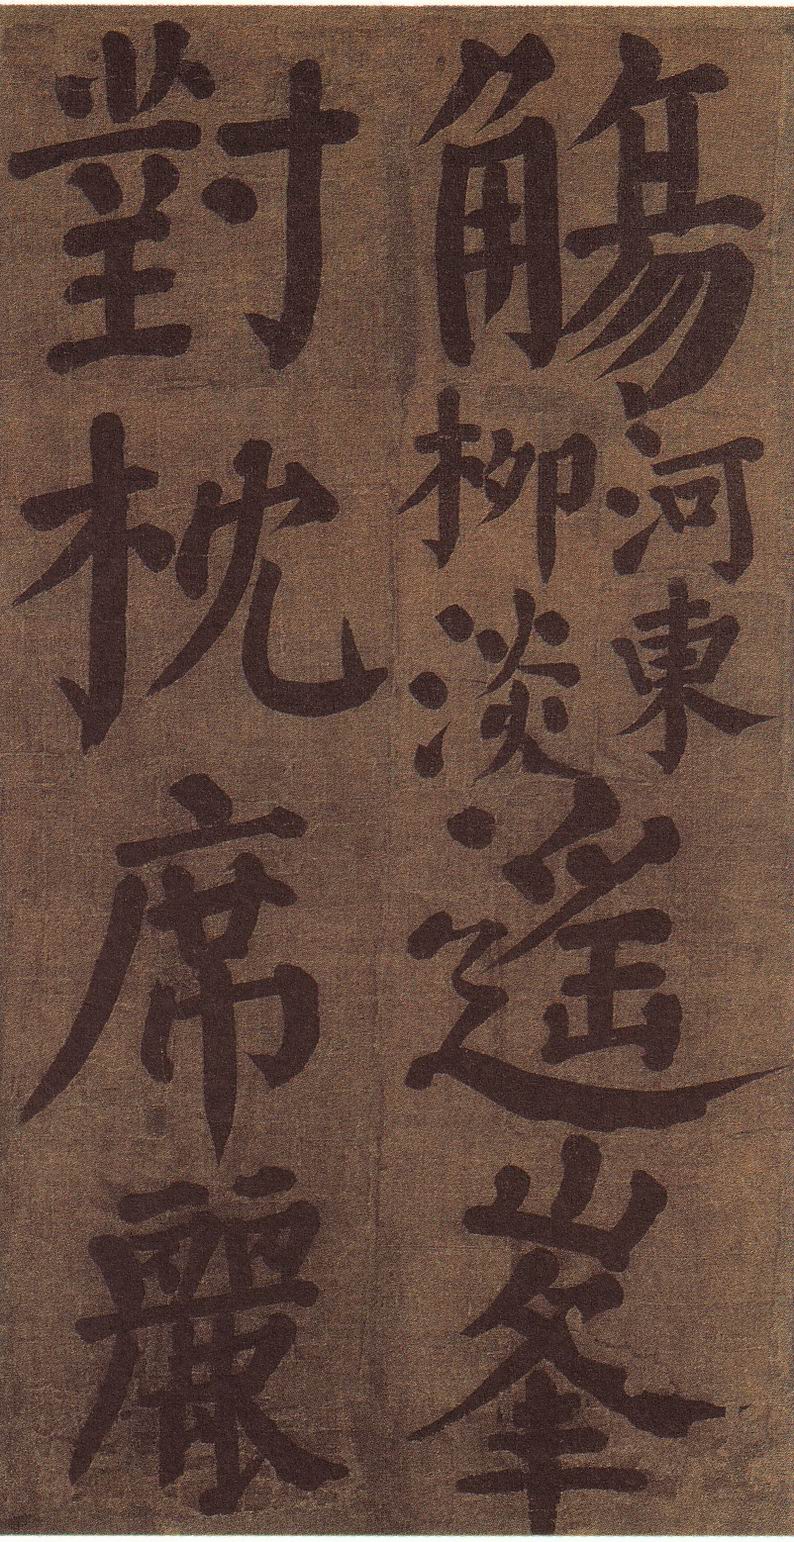 觴
河東
柳淡
遙峯
對枕席麗